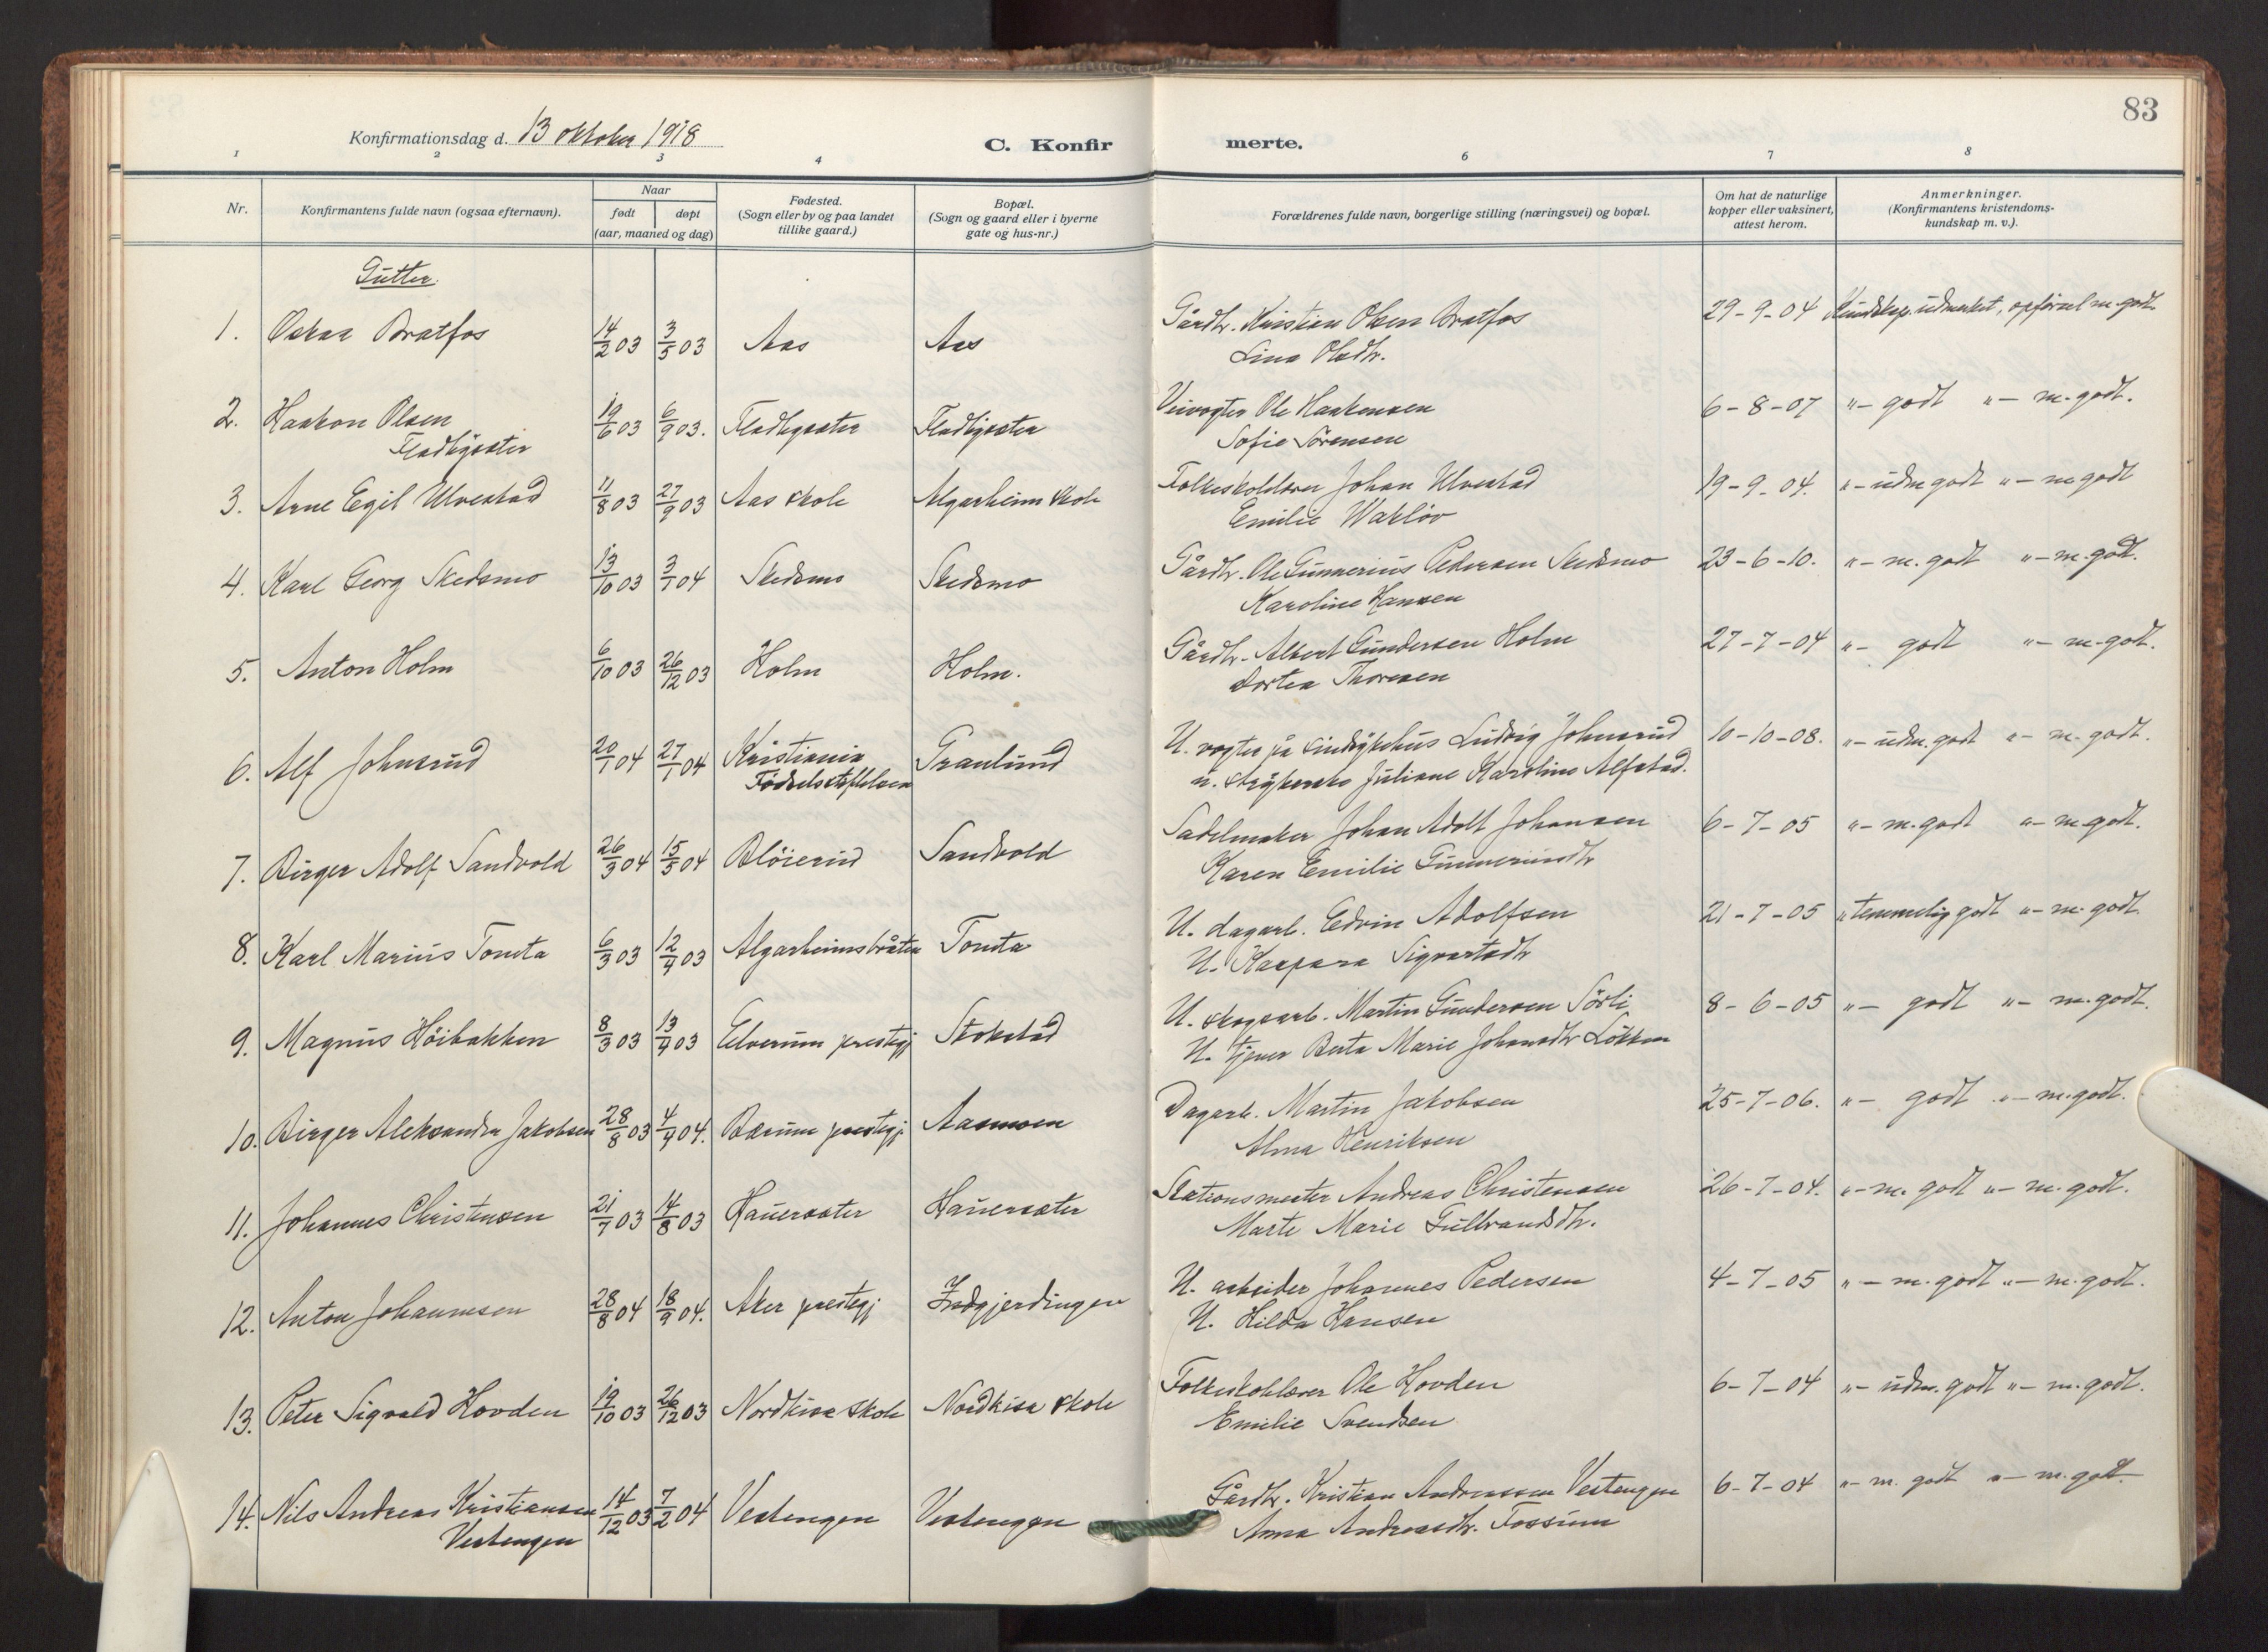 83
Konfirmationsdag d. 13 oktober 1918
C. Konfir merte.
1 2 3 4 6 7 8
Nr.
Konfirmantens fulde navn (ogsaa efternavn).
Naar
født døpt
(aar, maaned og dag)
Fødested.
(Sogn eller by og paa landet
tillike gaard.)
Bopæl.
(Sogn og gaard eller i byerne
gate og hus-nr.)
Forældrenes fulde navn, borgerlige stilling (næringsvei) og bopæl.
Om hat de naturlige
kopper eller vaksinert,
attest herom.
Anmerkninger.
(Konfirmantens kristendoms-
kundskap m. v.).
Gutter.
1. Oskar Bratfos 14/2 03 3/5 03 Aas Aas Gårdbr. Kristian Olsen Bratfos 29-9-04 Kundskap. udmerket, opførsel m. godt.
Lina Olsdtr.
2. Haakon Olsen 19/6 03 6/9 03. Fladbysæter Fladbysæter Veivogter Ole Haakensen 6-8-07 "- godt "- m. godt.
Fladbysæter Sofie Sörensen
3. Arne Egil Ulvestad 11/8 03 27/9 03 Aas skole Algarheim skole Folkeskolelærer Johan Ulvestad 19-9-04. "- udm godt "- m godt
Emilie Wakløv
4. Karl Georg Skedsmo 13/10 03 3/1 04 Skedsmo Skedsmo Gårdbr. Ole Gunnerius Pedersen Skedsmo 23-6-10. "- m. godt "- m. godt.
Karoline Hansen
5. Anton Holm 6/10 03 26/12 03 Holm Holm. Gårdbr. Albert Gundersen Holm 27-7-04 "- godt "- m. godt.
Dortea Thoresen
6. Alf Johnsrud 20/1 04 27/1 04 Kristiania Granlund U. vogter på sindsykehus Ludvig Johnsrud 10-10-08. "- udm. godt "- m. godt.
Fødselsstiftelsen u. strykerske Juliane Karoline Alfstad.
7. Birger Adolf Sandvold 26/3 04 15/5 04 Bløierud Sandvold Sadelmaker Johan Adolf Johansen 6-7-05 "- m. godt "- m godt.
Karen Emilie Gunnerusdtr
8. Karl Marius Tomta 6/3 03 12/4 03 Algarheimsbråten Tomta U. dagarb. Edvin Adolfsen 21-7-05 " temmelig godt "- m. godt.
U. Kaspara Sigvartsdtr
9. Magnus Höibakken 8/3 03 13/4 03 Elverum prestegj Stokstad U. skogsarb. Martin Gundersen Sörli 8-6-05 "- godt "- m. godt.
U. tjener Berta Marie Johansdtr Løkken
10. Birger Aleksander Jakobsen 28/8 03 4/9 04. Bærum prestegj. Aasmoen Dagarb. Martin Jakobsen 25-7-06. "- godt "- m. godt.
Alma Henriksen
11. Johannes Christensen 21/7 03 14/8 03 Hauersæter Hauersæter Stationsmester Andreas Christensen 26-7-04. "- m. godt "- m. godt.
Marte Marie Gulbrandsdtr.
12. Anton Johannesen 28/8 04 18/9 04. Aker prestegj Indgjerdingen U. arbeider Johannes Pedersen 4-7-05 "- m. godt "- m. godt.
U. Hilda Hansen
13. Peter Sigvald Hovden 19/10 03 26/12 03 Nordkisa skole Nordkisa skole Folkeskolelærer Ole Hovden 6-7-04 "- udm. godt "- m. godt.
Emilie Svendsen
14. Nils Andreas Kristiansen 14/12 03 7/2 04 Vestengen Vestengen Gårdbr. Kristian Andreassen Vestengen 6-7-04 "- m. godt "- m. godt.
Vestengen Anna Andreasdtr. Fossum